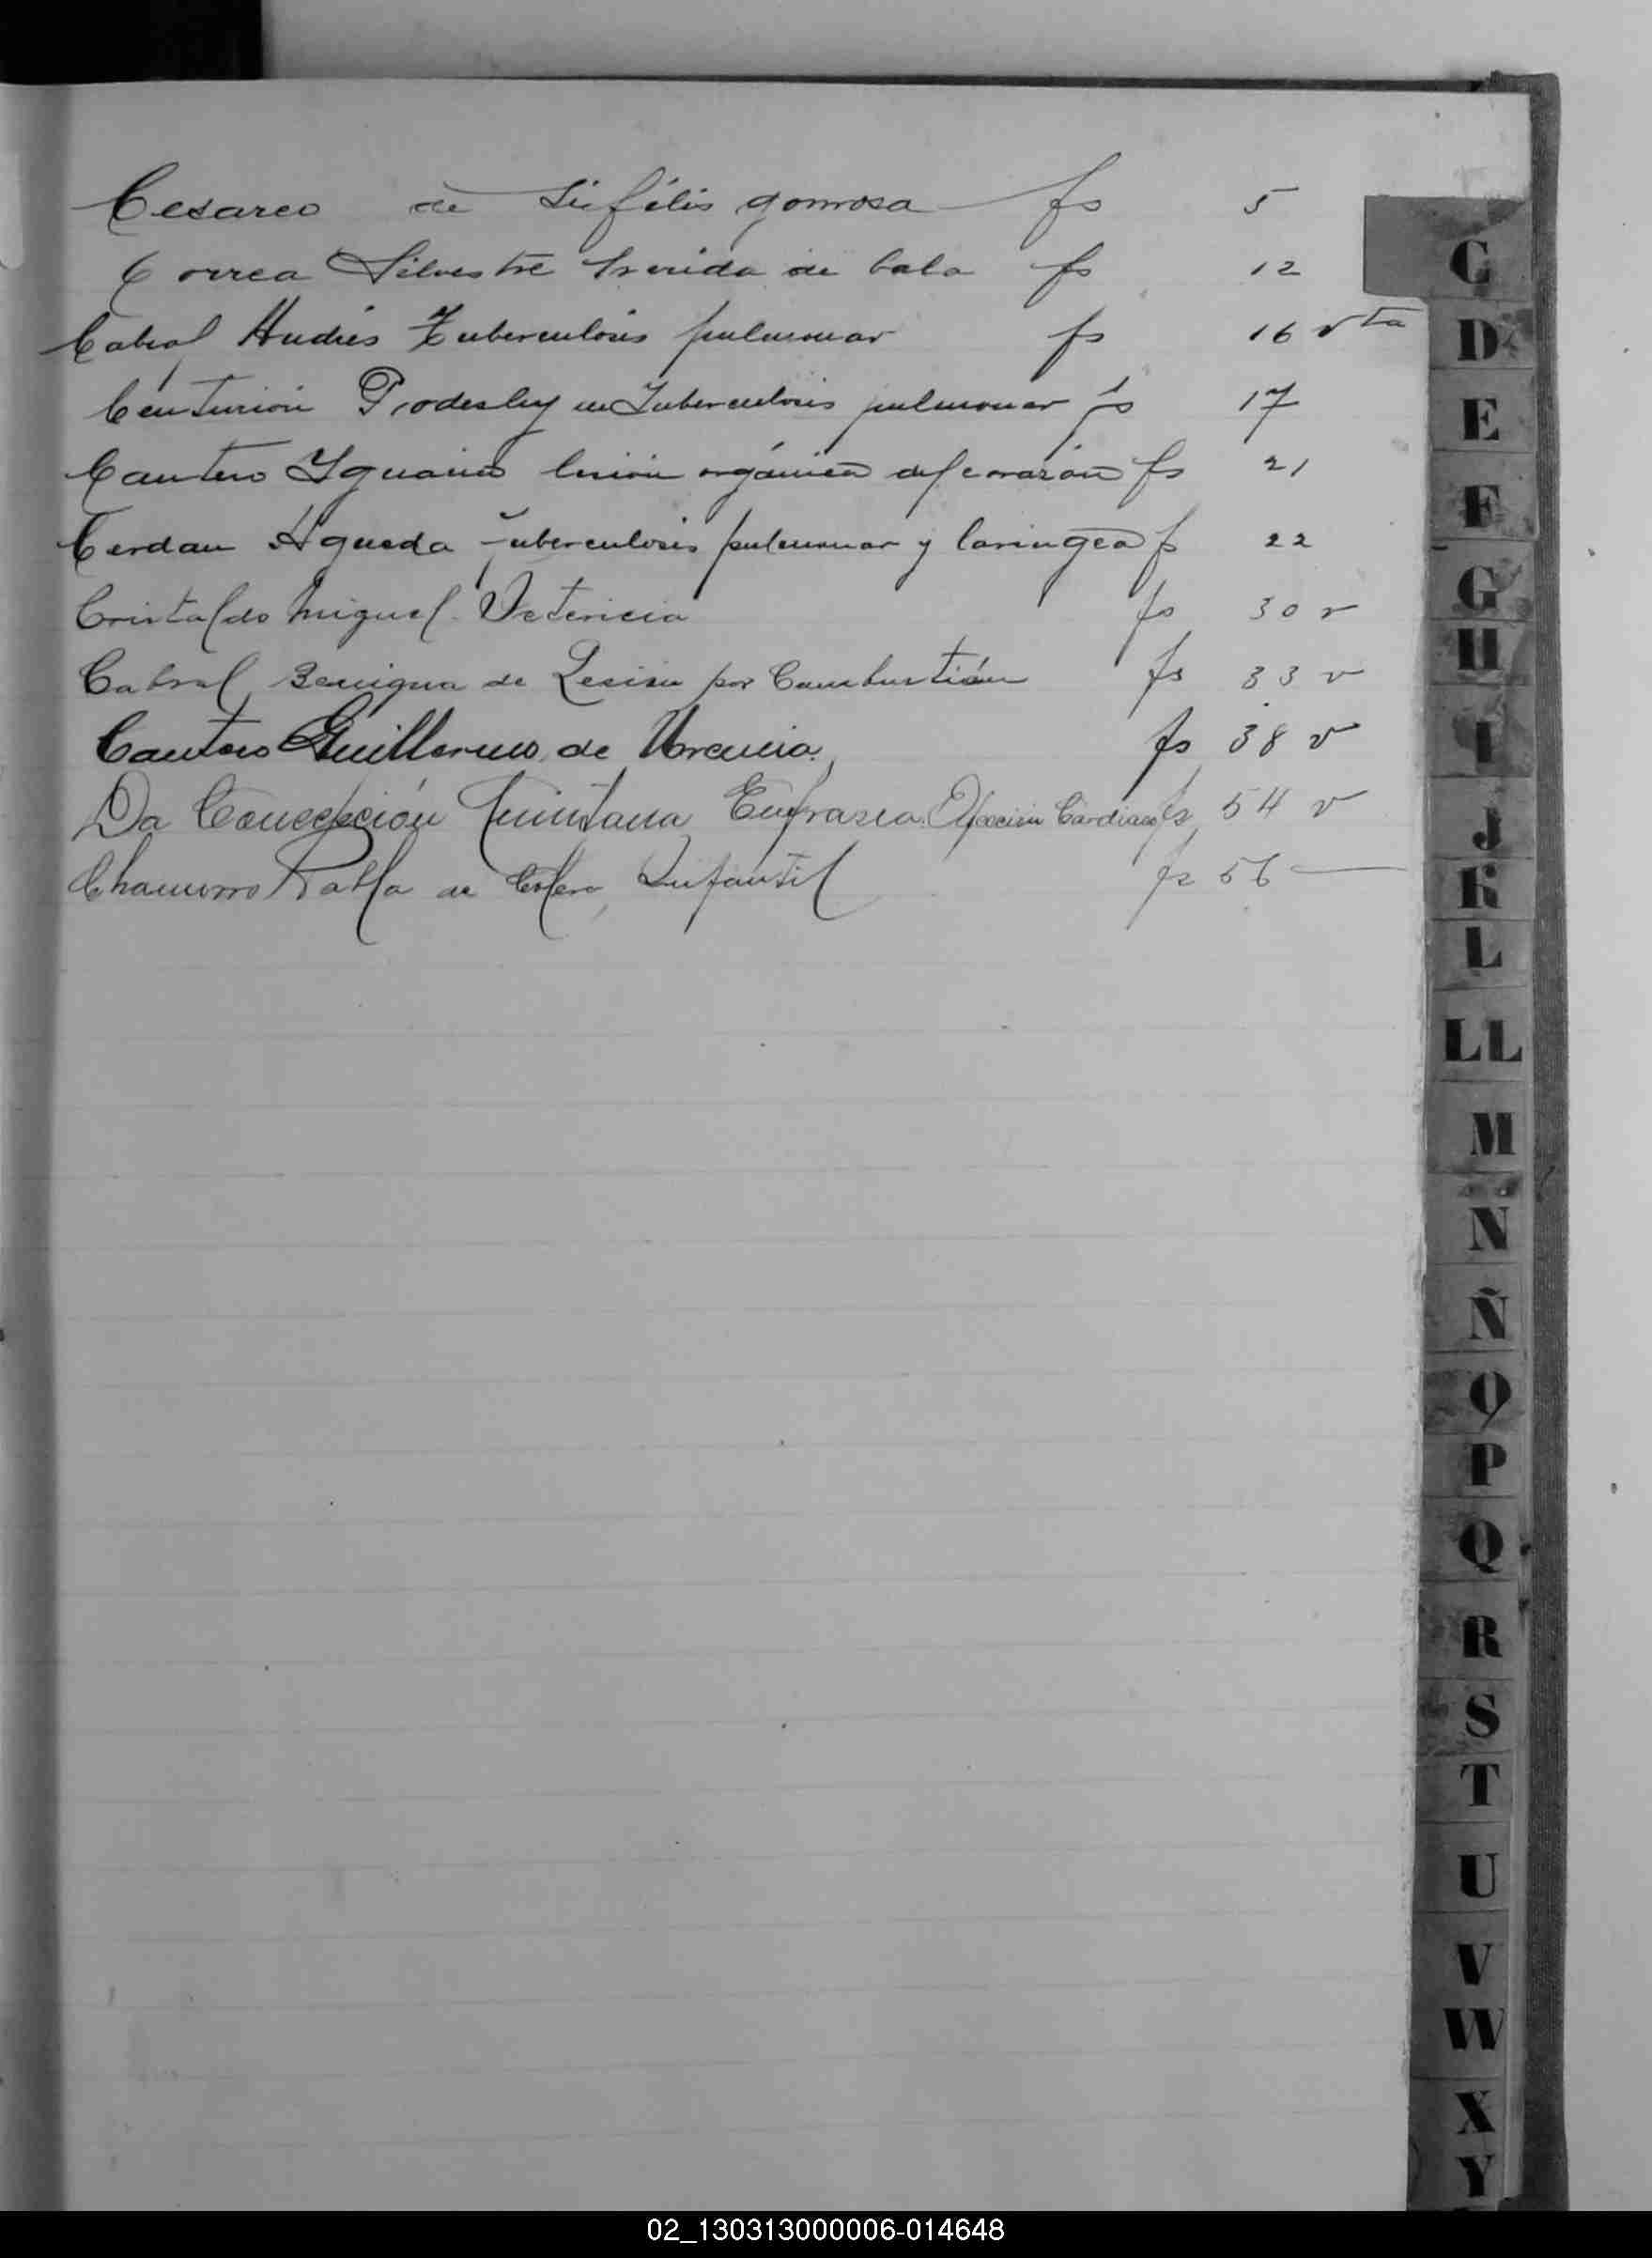 Cesareo de Sifilis gomosa fs 5
Correa Silvestre herida de bala fs 12
Cabral Andrés Tuberculosis pulmonar fs 16 vta
Centurión Tuberculosis pulmonar fs 17
Cantero Ygnacio lesión orgánica del corazón fs 21
Cerdan Agueda Tuberculosis pulmonar y laringea fs 22
Cristaldo Miguel Ictericia fs 30 v
Cabral Benigna de Lesion por Combustión fs 33 v
Cantero Guillermo de Uremia fs 38 v
Da Concepción Quintana Eufrasia Afeccion Cardiaca fs 54 v
Chamorro Pabla de Colera Infantil fs 56
C
D
E
F
G
H
I
J
K
L
LL
M
N
Ñ
O
P
Q
R
S
T
U
V
W
X
Y
02_130313000006-014648